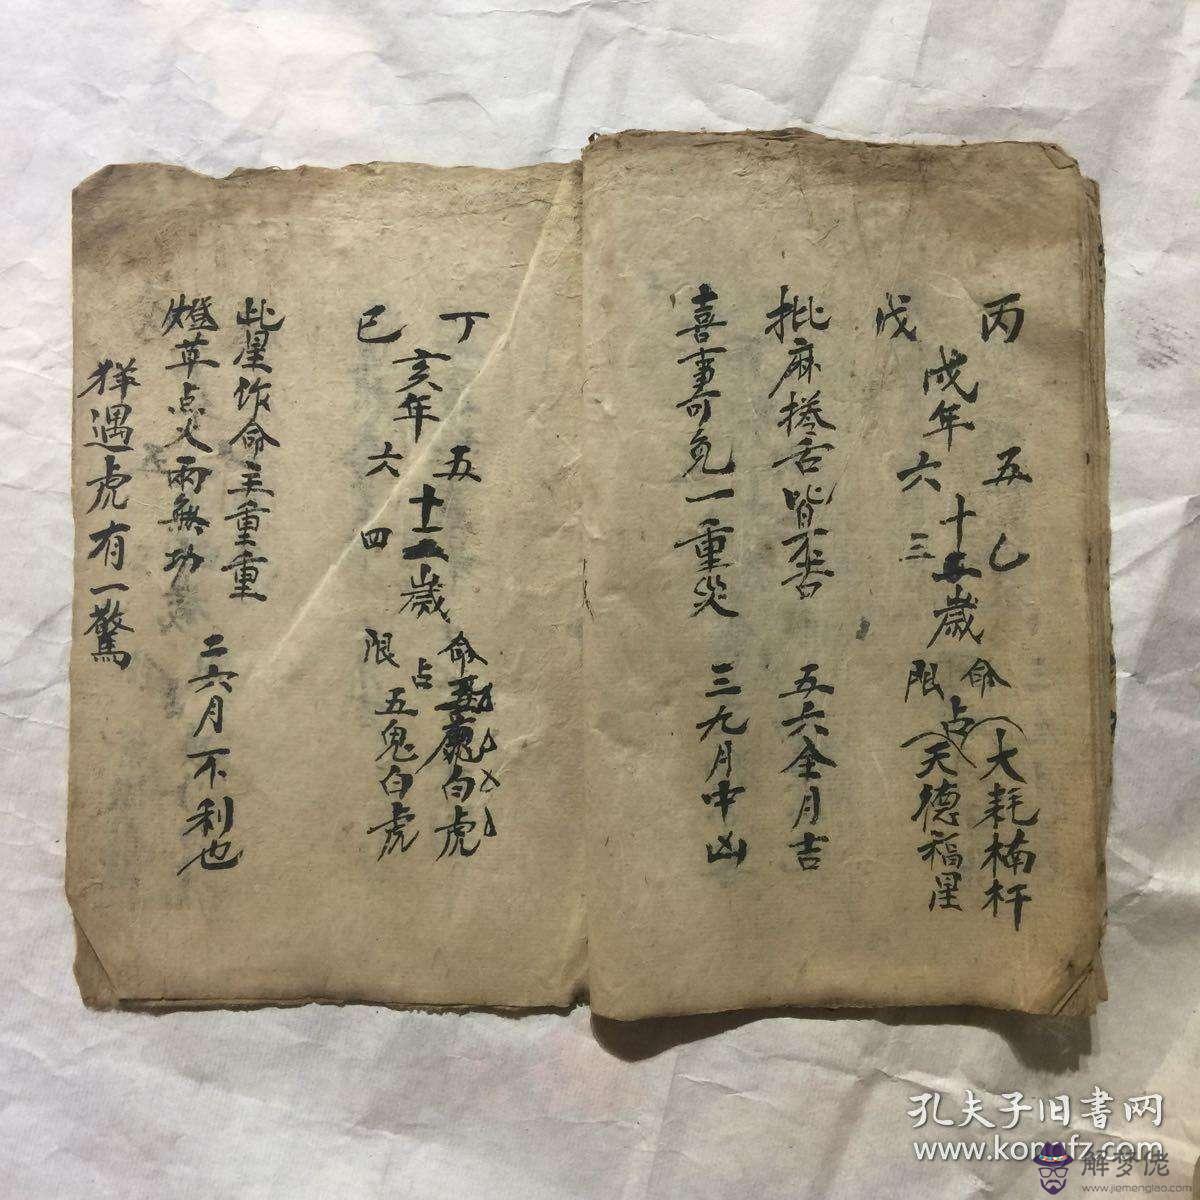 丙 五 乙 命 大耗楠杆
戌年 十二歲 占
戊 六 三 限 天德福星
批麻捲舌皆不吉 五六全月吉
喜事可免一重災 三九月中凶
丁 五 命 五鬼白虎
亥年 十二歲 占
己 六 四 限 五鬼白虎
此星作命主重重
燈草点火兩無功 二六月不利也
羊遇虎有一驚
孔夫子旧書网
www.kongfz.com
解梦佬
www.jiemenglao.com